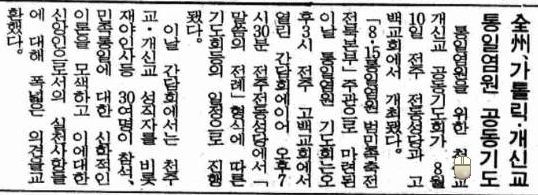 全州、가톨릭·개신교
통일염원 공동기도
통일염원을 위한
개신교 공동기도회가 8월
10일 전주 전동성당과 고
백교회에서 개최됐다.
「8·15통일염원 범민족축전
전북본부」주관으로 마련된
이날 통일염원 기도회는 오
후3시 전주 고백교회에서
열린 간담회에이어 오후7
시30분 전주전동성당에서「
말씀의 전례」형식에 따른
기도회등의 일정으로 진행
됐다.
이날 간담회에서는 천주
교·개신교 성직자를 비롯
재야인사등 30여명이 참석,
민족통일에 대한 신학적인
이론을 모색하고 이에대한
신앙인으로서의 실천사항들
에 대해 폭넓은 의견을교
환했다.